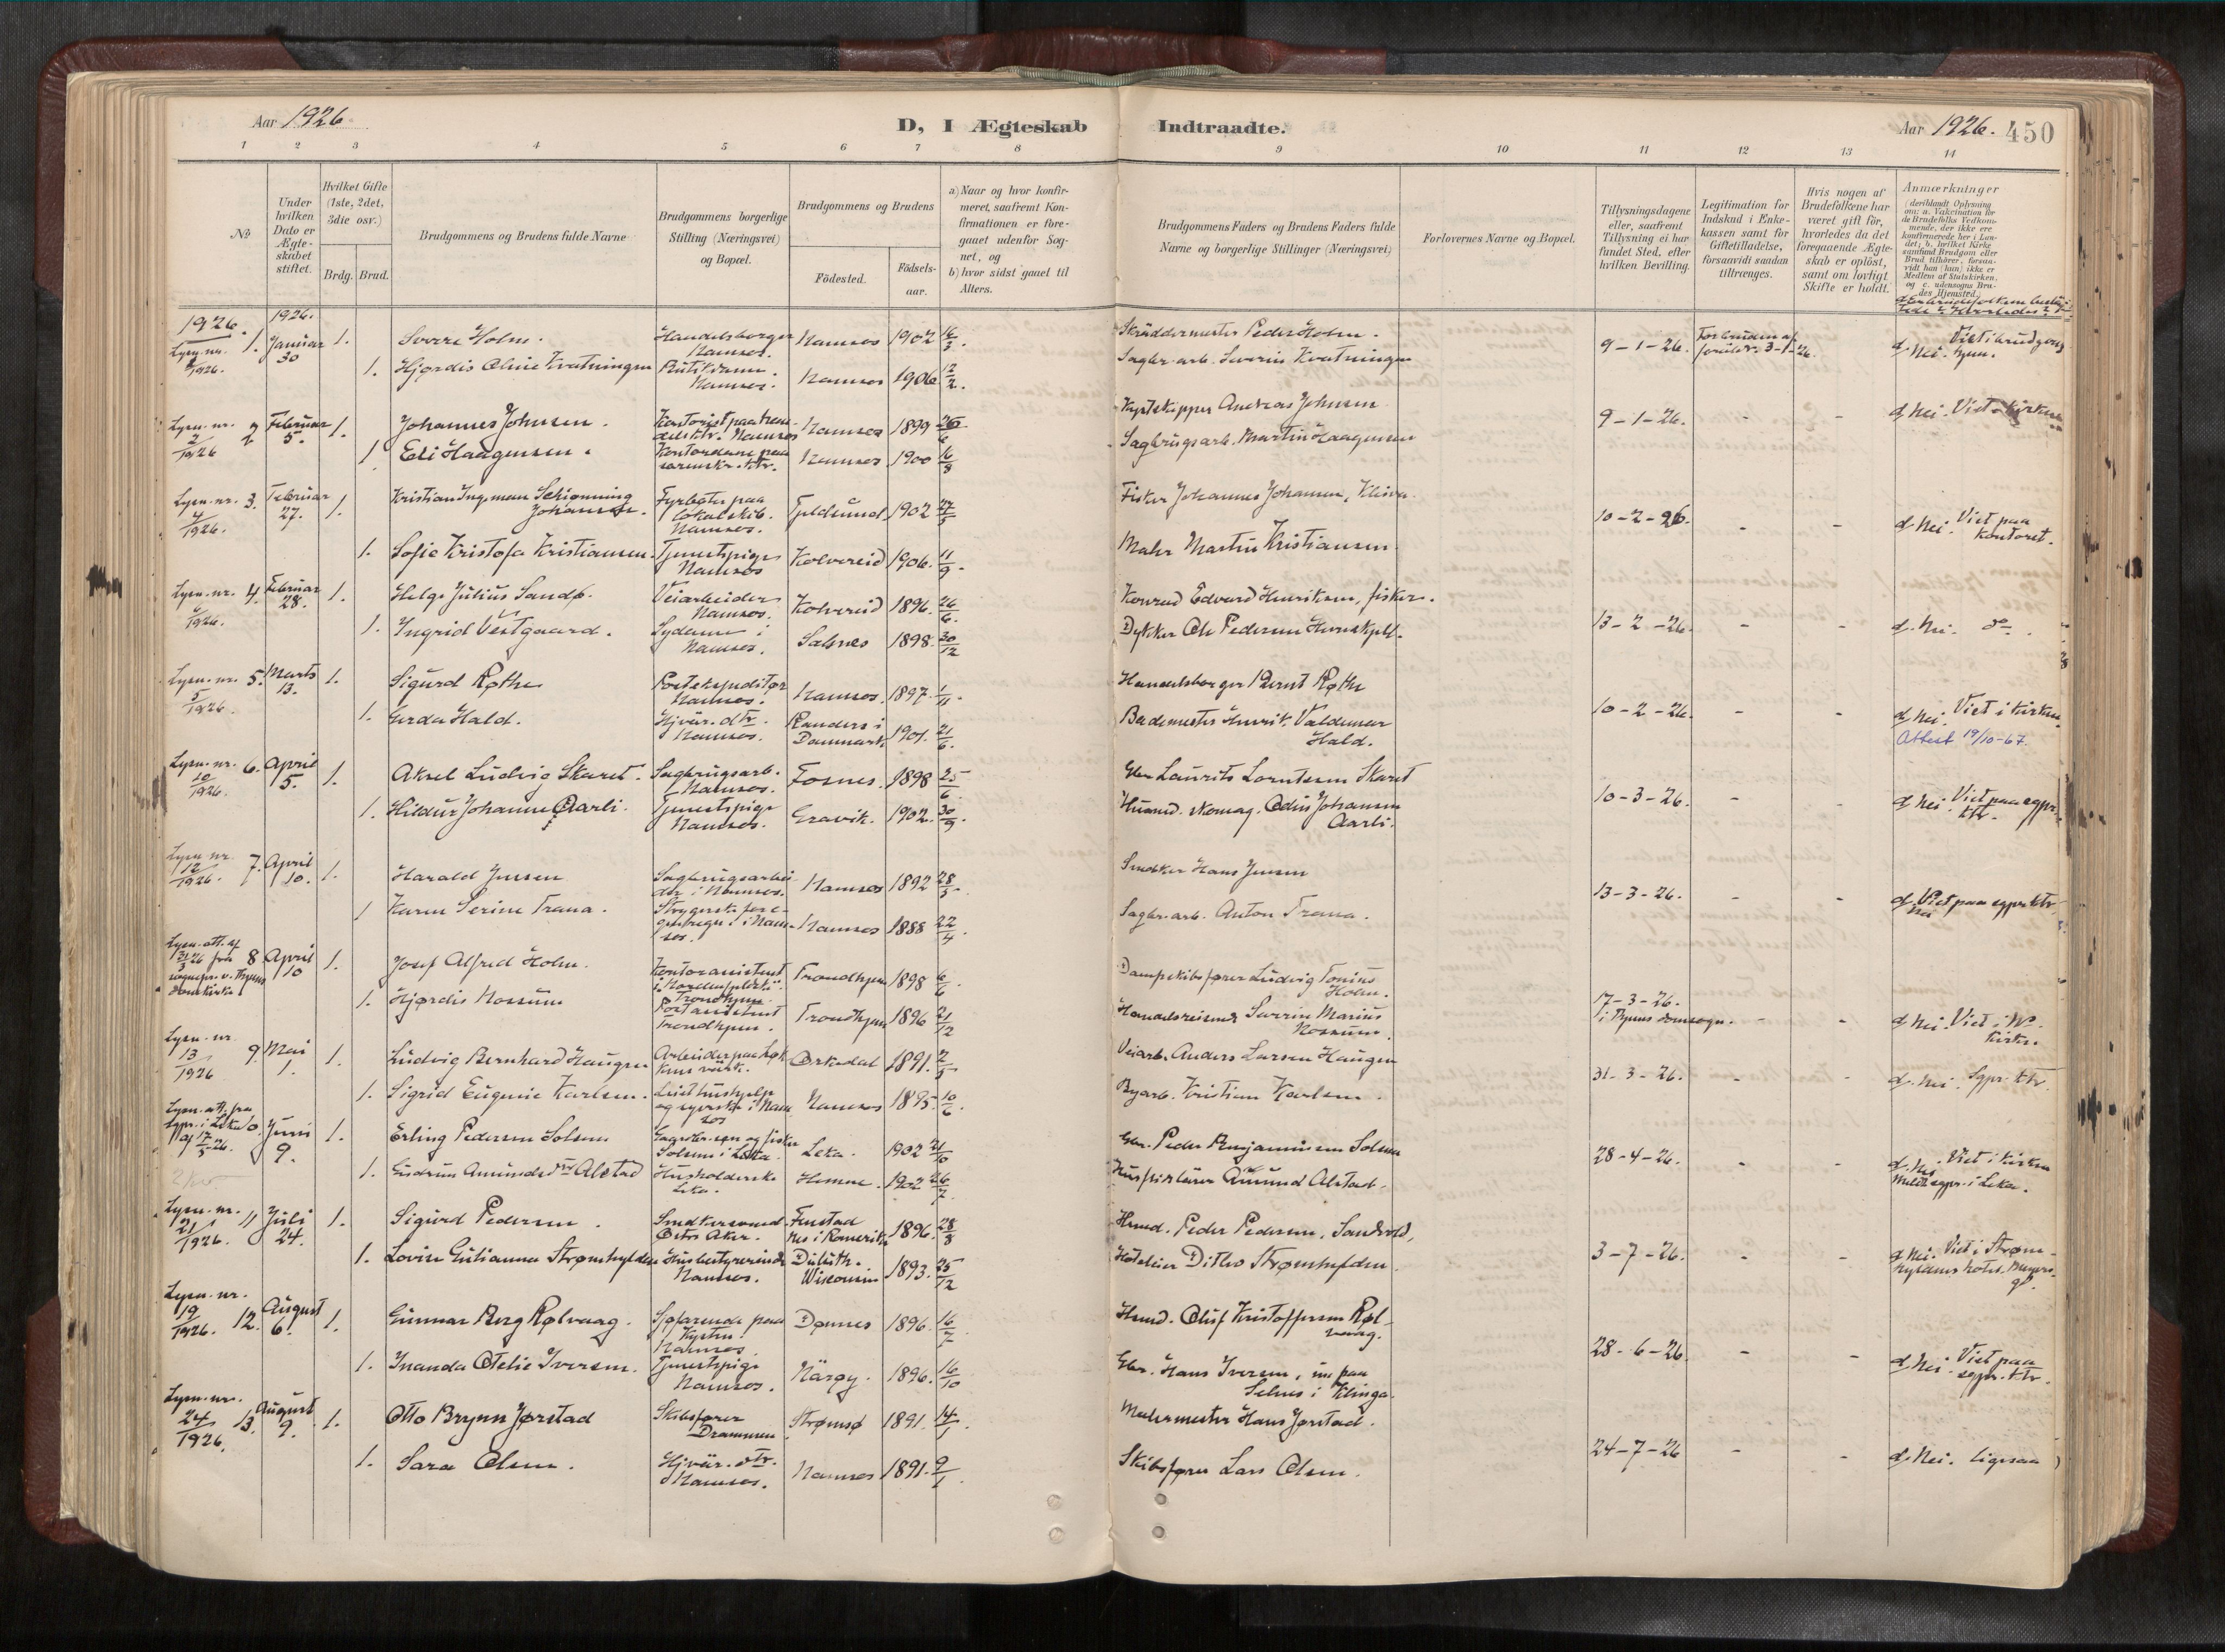 Aar 1926.
D, I Ægteskab Indtraadte.
Aar 1926. 450
1 2 3 4 5 6 7 8 9 10 11 12 13 14
No
Under hvilken Dato er Ægteskabet stiftet.
Hvilket Gifte (1ste, 2det, 3die osv.)
Brdg. Brud.
Brudgommens og Brudens fulde Navne
Brudgommens borgerlige Stilling (Næringsvei) og Bopæl.
Brudgommens og Brudens
Födested.
Födselsaar.
a) Naar og hvor konfirmeret, saafremt Konfirmationen er foregaaet udenfor Sognet, og
b) hvor sidst gaaet til Alters.
Brudgommens Faders og Brudens Faders fulde Navne og borgerlige Stillinger (Næringsvei)
Forlovernes Navne og Bopæl.
Tillysningsdagene eller, saafremt Tillysning ei har fundet Sted, efter hvilken Bevilling.
Legitimation for Indskud i Enkekassen samt for Giftetilladelse, forsaavidt saadan tiltrænges.
Hvis nogen af Brudefolkene har været gift för, hvorledes da det foregaaende Ægteskab er oplöst, samt om lovligt Skifte er holdt.
Anmærkninger
(deriblandt Oplysning om: a. Vakcination for de Brudefolks Vedkommende, der ikke ere konfirmerede her i Landet; b. hvilket Kirkesamfund Brudgom eller Brud tilhörer, forsaavidt han (hun) ikke er Medlem af Statskirken, og c. udensogns Brudes Hjemsted.)
1926. 1926.
Lysn. nr. 1. Januar 30 1. Sverre Holm. Handelsborger Namsos. Namsos 1902 16/3. Skräddermester Peder Holm. 9-1-26. d. Nei. Viet i brudgoms hjem.
1. Hjørdis Oline Kvatningen Namsos. Namsos 1906 12/2. Sagbr. arb. Severin Kvatningen
Lysn. nr. 2/1926 2 Februar 5. 1. Johannes Johnsen. Namsos 1899 26/6 Andreas Johnsen 9-1-26. - - d. Nei. Viet i kirken
1 Eli Haagensen. Kontordame paa Namsos 1900 16/8 Sagbrugsarb. Martin Haagensen
Lysn. nr. 4/1926. 3. Februar 27. 1. Kristian Ingeman Schiønning Johansen. Fyrbøter paa lokalskib. Namsos. 1902 27/5 Fisker Johannes Johansen, 10-2-26. - - d. Nei. Viet paa kontoret.
1. Sofie Kristofa Kristiansen. Tjenestpige Namsos Kolvereid 1906. 11/9. Maler Martin Kristiansen
Lysn. nr. 6/1926. 4. Februar 28. 1. Helge Julius Sandø. Veiarbeider Namsos. Kolvereid 1896. 26/6. Konrad Edvard Henriksen, fisker. 13-2-26. - - d. Nei. do.
1. Ingrid Vestgaard. Sydame i Namsos. Salsnes 1898. 30/12 Dykker Ole Pedersen
Lysn. nr. 5/1926. 5. Marts 13. 1. Sigurd Røthe Postekspeditør Namsos. Namsos. 1897. 1/11. Handelsborger Bernt Røthe 10-2-26. - - d. Nei. Viet i kirken.
1. Gerda Hald. Hjvär. dtr. Namsos. Randers i Danmark 1901. 21/6. Bademester Henrik Valdemar Hald. Attest 19/10-67.
Lysn. nr. 10/1926. 6. April 5. 1. Aksel Ludvig Skaret. Sagbrugsarb. Namsos. Fosnes. 1898 25/6 Gbr. Laurits Lorntsen Skaret 10-3-26. - - d. Nei. Viet paa sgpr. ktr.
1. Hildur Johanne Aarli. Tjenestpige Namsos. Gravik. 1902. 30/9. Husmd. skomag. Odin Johansen Aarli.
Lysn. nr. 12/1926. 7. April 10. 1. Harald Jensen Sagbrugsarbeider i Namsos. Namsos 1892 28/5. Snedker Hans Jensen 13-3-26. - - d. Nei Viet paa sgpr. ktr.
1 Karen Serine Trana. Namsos 1888 22/4 Sagbr. arb. Anton Trana.
Lysn. att. af 31/3 26 fra sognepr. v. Thjems domkirke 8 April 10 1. Josef Alfred Holm. Kontorassistent Trondhjem. Trondhjem 1898 6/6. Dampskibsfører Ludvig Tonius Holm. 17-3-26. i Thjems domsogn. - - d. Nei. Viet i Ns. kirke.
1. Hjørdis Nossum Postassistent Trondhjem. Trondhjem 1896 21/12 Handelsreisende Severin Marius Nossum.
Lysn. nr. 13/1926 9. Mai 1. 1. Ludvig Bernhard Haugen Orkedal 1891. 2/5 Veiarb. Anders Larsen Haugen 31-3-26. - - d. Nei. Sgpr. ktr.
1. Sigrid Eugenie Karlsen. Namsos 1895. 10/6. Byarb. Kristian Karlsen.
Lysn. att. fra sgpr. i Leka af 17/5-26. Juni 9. 1. Erling Pedersen Solsem Gaardbr. søn og fisker Solsem i Leka. Leka. 1902 21/10 Gbr. Peder Benjaminsen Solsem 28-4-26. - - d. Nei Viet i kirken Meldt sgpr. i Leka.
1. Gudrun Amundsdtr Alstad Husholderske Leka. Hemne. 1902 26/7. Amund Alstad.
Lysn. nr. 21/1926. 11 Juli 24. 1. Sigurd Pedersen. Snedkersvend Østre Aker. 1896. 28/8 Husmd. Peder Pedersen, Sandvold, 3-7-26. - - d. Nei. Viet i Strømhyldens hotel.
1. Lovise Gutianna Strømhylden Husbestyrerinde Namsos. Duluth. Wisconsin 1893. 25/12 Hoteleier Ditlev Strømhylden.
Lysn. nr. 19/1926. 12. August 6. 1. Gunnar Berg Rølvaag. Sjøfarende paa kysten. Namsos. Dønnes 1896. 16/7. Husmd. Oluf Kristoffersen Rølvaag. 28-6-26. - - d. Nei. Viet paa sgpr. ktr.
1. Inanda Otelie Iversen. Tjenestpige Namsos. Närøy. 1896. 16/10 Gbr. Hans Iversen, nu paa Selnes i Klinga.
Lysn. nr. 24/1926. 13. August 9. 1. Otto Brynn Jørstad Skibsfører Drammen. Strømsø 1891. 14/1. Malermester Hans Jørstad. 24-7-26 - - d. Nei. ligesaa
1. Sara Olsen. Hjvär. dtr. Namsos. Namsos 1891. 9/1. Skibsfører Lars Olsen.